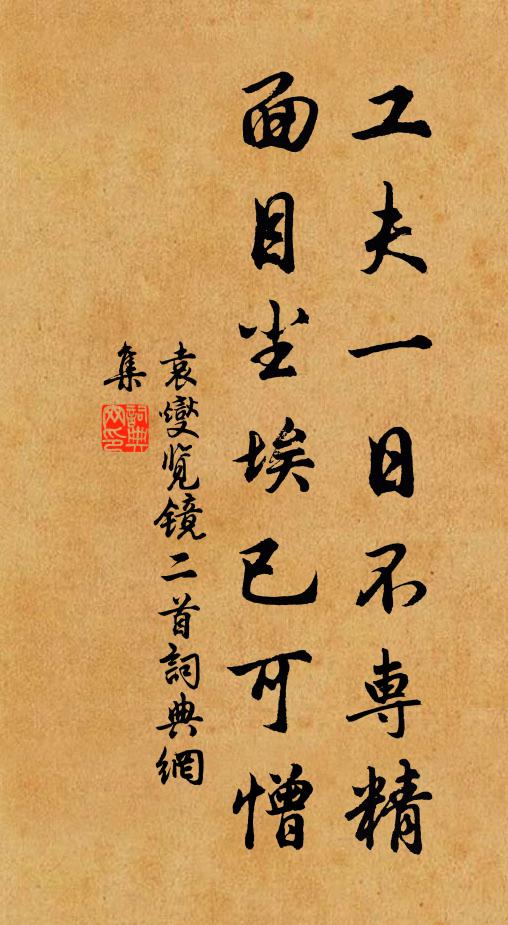 工夫一日不専精
面目尘埃已可憎
袁燮览镜二首詞典網
集
詞典网印